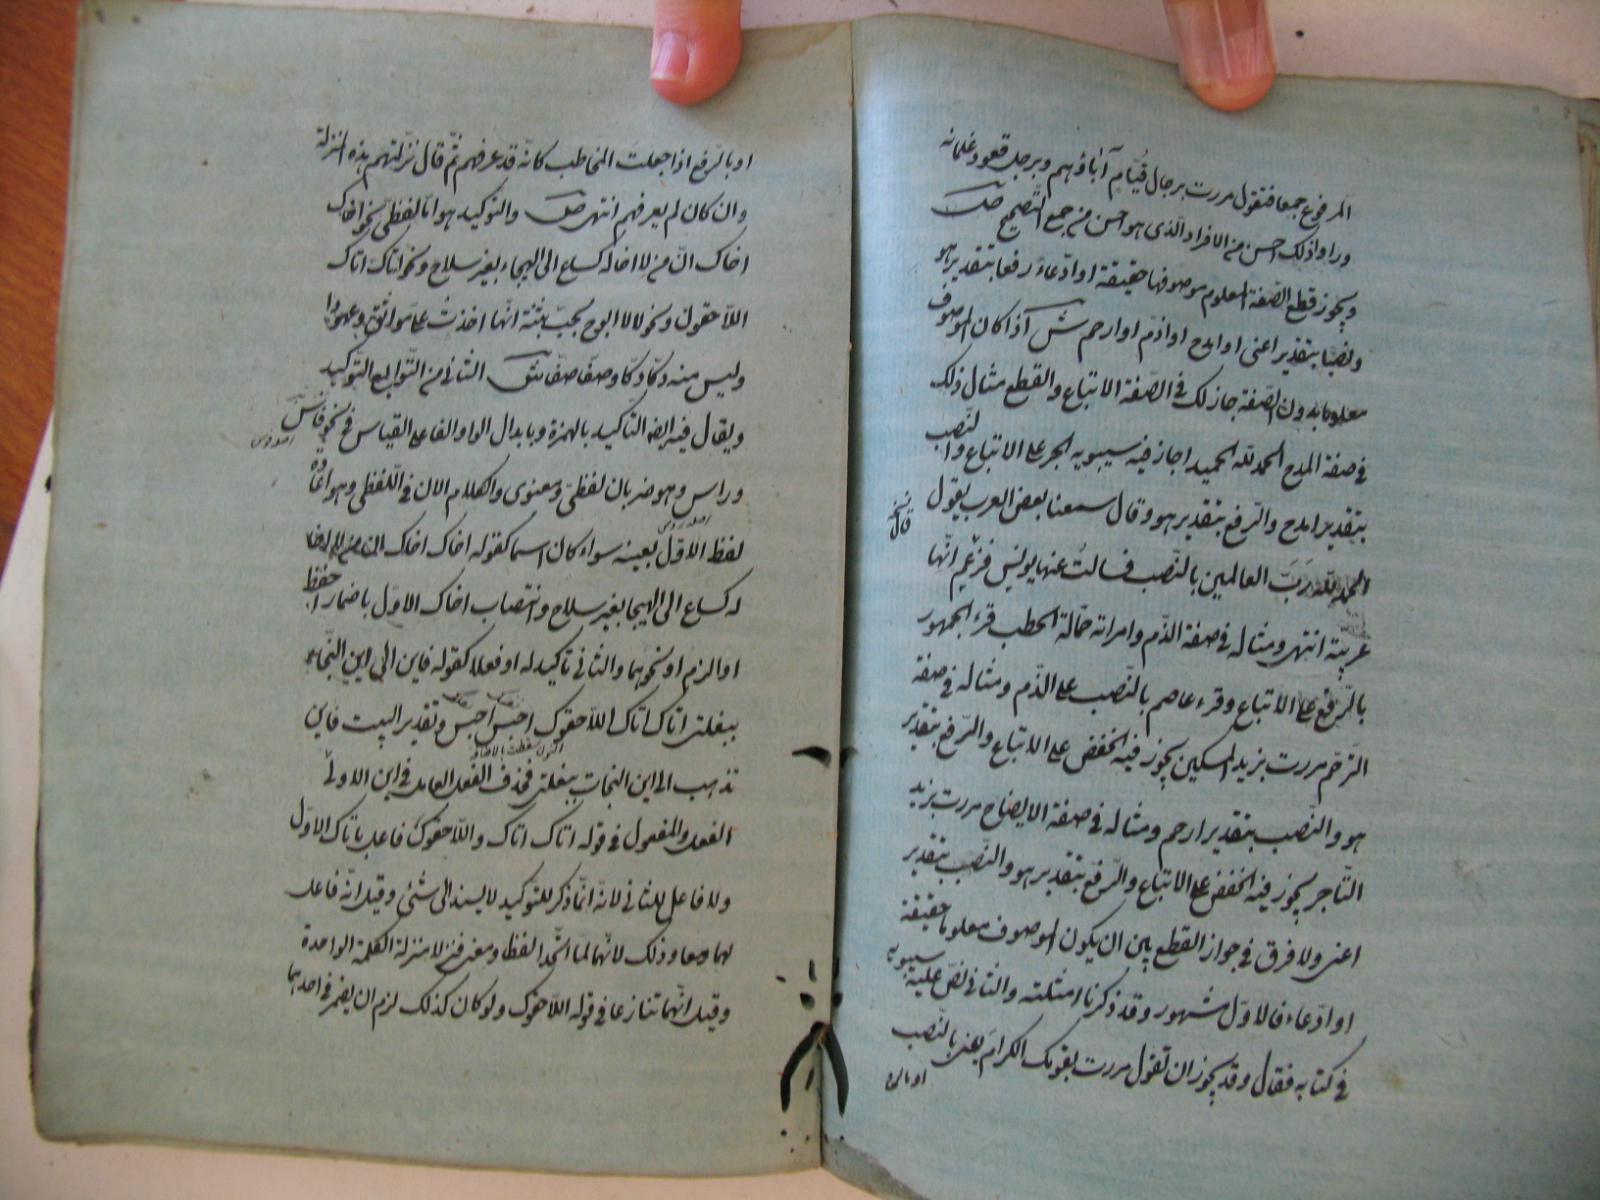 المرفوع جمعا فتقول مررت برجال قيام آباؤهم وبرجل قعود غلمانه
وراوا ذلك احسن من الافراد الذى هو احسن من جمع التصحيح ص
ويجوز قطع الصّفة المعلوم موصوفها حقيقة او ادّعاء رفعا بتقدير هو
ونصبا بتقدير اعنى او امدح او اذمّ او ارحم ش اذا كان الموصوف
معلوما بدون الصّفة جاز لك فى الصّفة الاتباع والقطع مثال ذلك
فى صفة المدح الحمد للّه الحميد اجاز فيه سيبويه الجر على الاتباع والنّصب
بتقدير امدح والرّفع بتقدير هو وقال سمعنا بعض العرب يقول
قال نسخه
الحمد للّه رَبَّ العالمين بالنّصب فسالت عنها يونس فزعم انّها
عربيّة انتهى ومثاله فى صفة الذّم وامراته حمّالة الحطب قرء الجمهور
بالرّفع على الاتباع وقرء عاصم بالنّصب على الذّم ومثاله فى صفة
الترّحم مررت بزيد المسكين يجوز فيه الخفض على الاتباع والرّفع بتقدير
هو والنّصب بتقدير ارحم ومثاله فى صفة الايضاح مررت بزيد
التّاجر يجوز فيه الخفض على الاتباع والرّفع بتقدير هو والنّصب بتقدير
اعنى ولا فرق فى جواز القطع بين ان يكون الموصوف معلوما حقيقة
او ادّعاء فالاوّل مشهور وقد ذكرنا امثلته والثانى نصّ عليه سيبويه
فى كتابه فقال وقد يجوز ان تقول مررت بقومك الكرامَ يعنى بالنّصب
او بالرّفع
او بالرّفع اذا جعلت المخاطب كانّه قد عرفهم ثمّ قال نزلتهم هذه المنزلة
وان كان لم يعرفهم انتهى ص والتوكيد هو امّا لفظىّ نحو اخاك
اخاك انّ من لا اخا له كساع الى الهيجاء بغير سلاح ونحو اتاك اتاك
اللّاحقون ونحو لا لا ابوح بحبّ بثنة انّها اخذت علىّ مواثقا وعهودا
وليس منه دكّا دكّا وصفّا صفّا ش الثانى من التّوابع التّوكيد
ويقال فيه ايضا التاكيد بالهمزة وبابدال الواو الفا على القياس فى نحو فاس
وراس وهو ضربان لفظىّ ومعنوى والكلام الان فى اللّفظى وهو اعادة
لفظ الاوّل بعينه سواء كان اسما كقوله اخاك اخاك انّ من لا اخا
له كساع الى الهيجا بغير سلاح وانتصاب اخاك الاوّل باضمار احفظ
او الزم او نحوهما والثانى تاكيد له او فعلا كقوله فاين الى اين النّجاء
ببغلتى اتاك اتاك اللّاحقوك احبس احبس وتقدير البيت فاين
تذهب الى اين النجات ببغلتى فحذف الفعل العامل فى اين الاولى
الفعل والمفعول فى قوله اتاك اتاك واللّاحقوك فاعل باتاك الاوّل
ولا فاعل للثانى لانّه انّما ذكر للتوكيد لا ليسند الى شئ وقيل انّه فاعل
لهما معا وذلك لانّهما لمّا اتّحدا لفظا ومعنى نزلا منزلة الكلمة الواحدة
وقيل انّهما تنازعا فى قوله اللّاحقوك ولو كان كذلك لزم ان يضمر فى احدهما